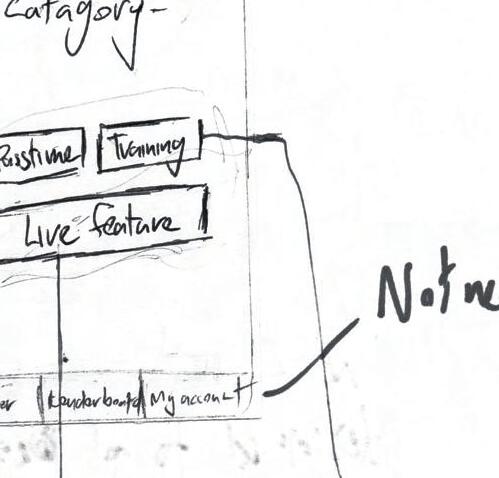 Catagory-
Passtime Training
Live feature
Leaderboard My account
Not